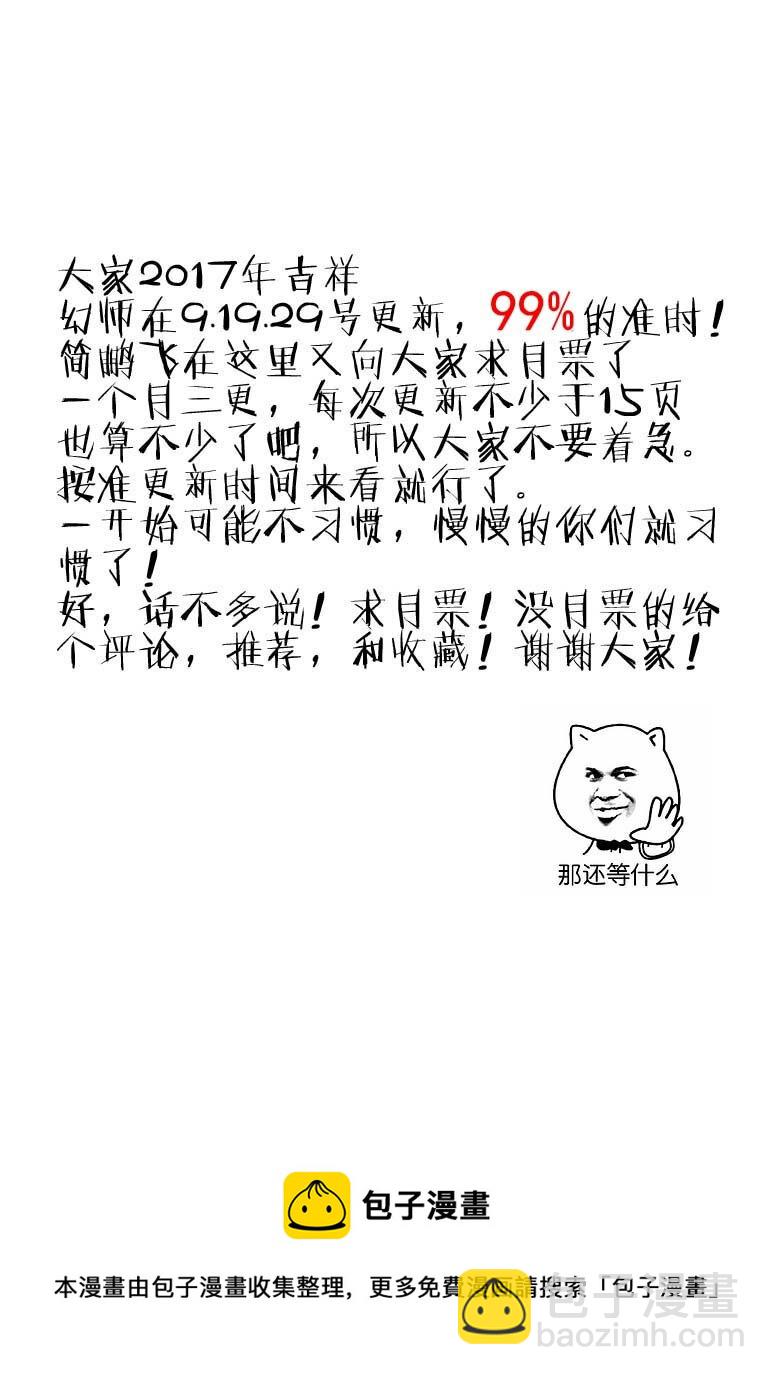 大家2017年吉祥
幻师在9.19.29号更新，99%的准时！
简鹏飞在这里又向大家求月票了
一个月三更，每次更新不少于15页
也算不少了吧，所以大家不要着急。
按准更新时间来看就行了。
一开始可能不习惯，慢慢的你们就习
惯了！
好，话不多说！求月票！没月票的给
个评论，推荐，和收藏！谢谢大家！
那还等什么
包子漫畫
本漫畫由包子漫畫收集整理，更多免費漫画請搜索「包子漫畫」
包子漫畫
baozimh.com